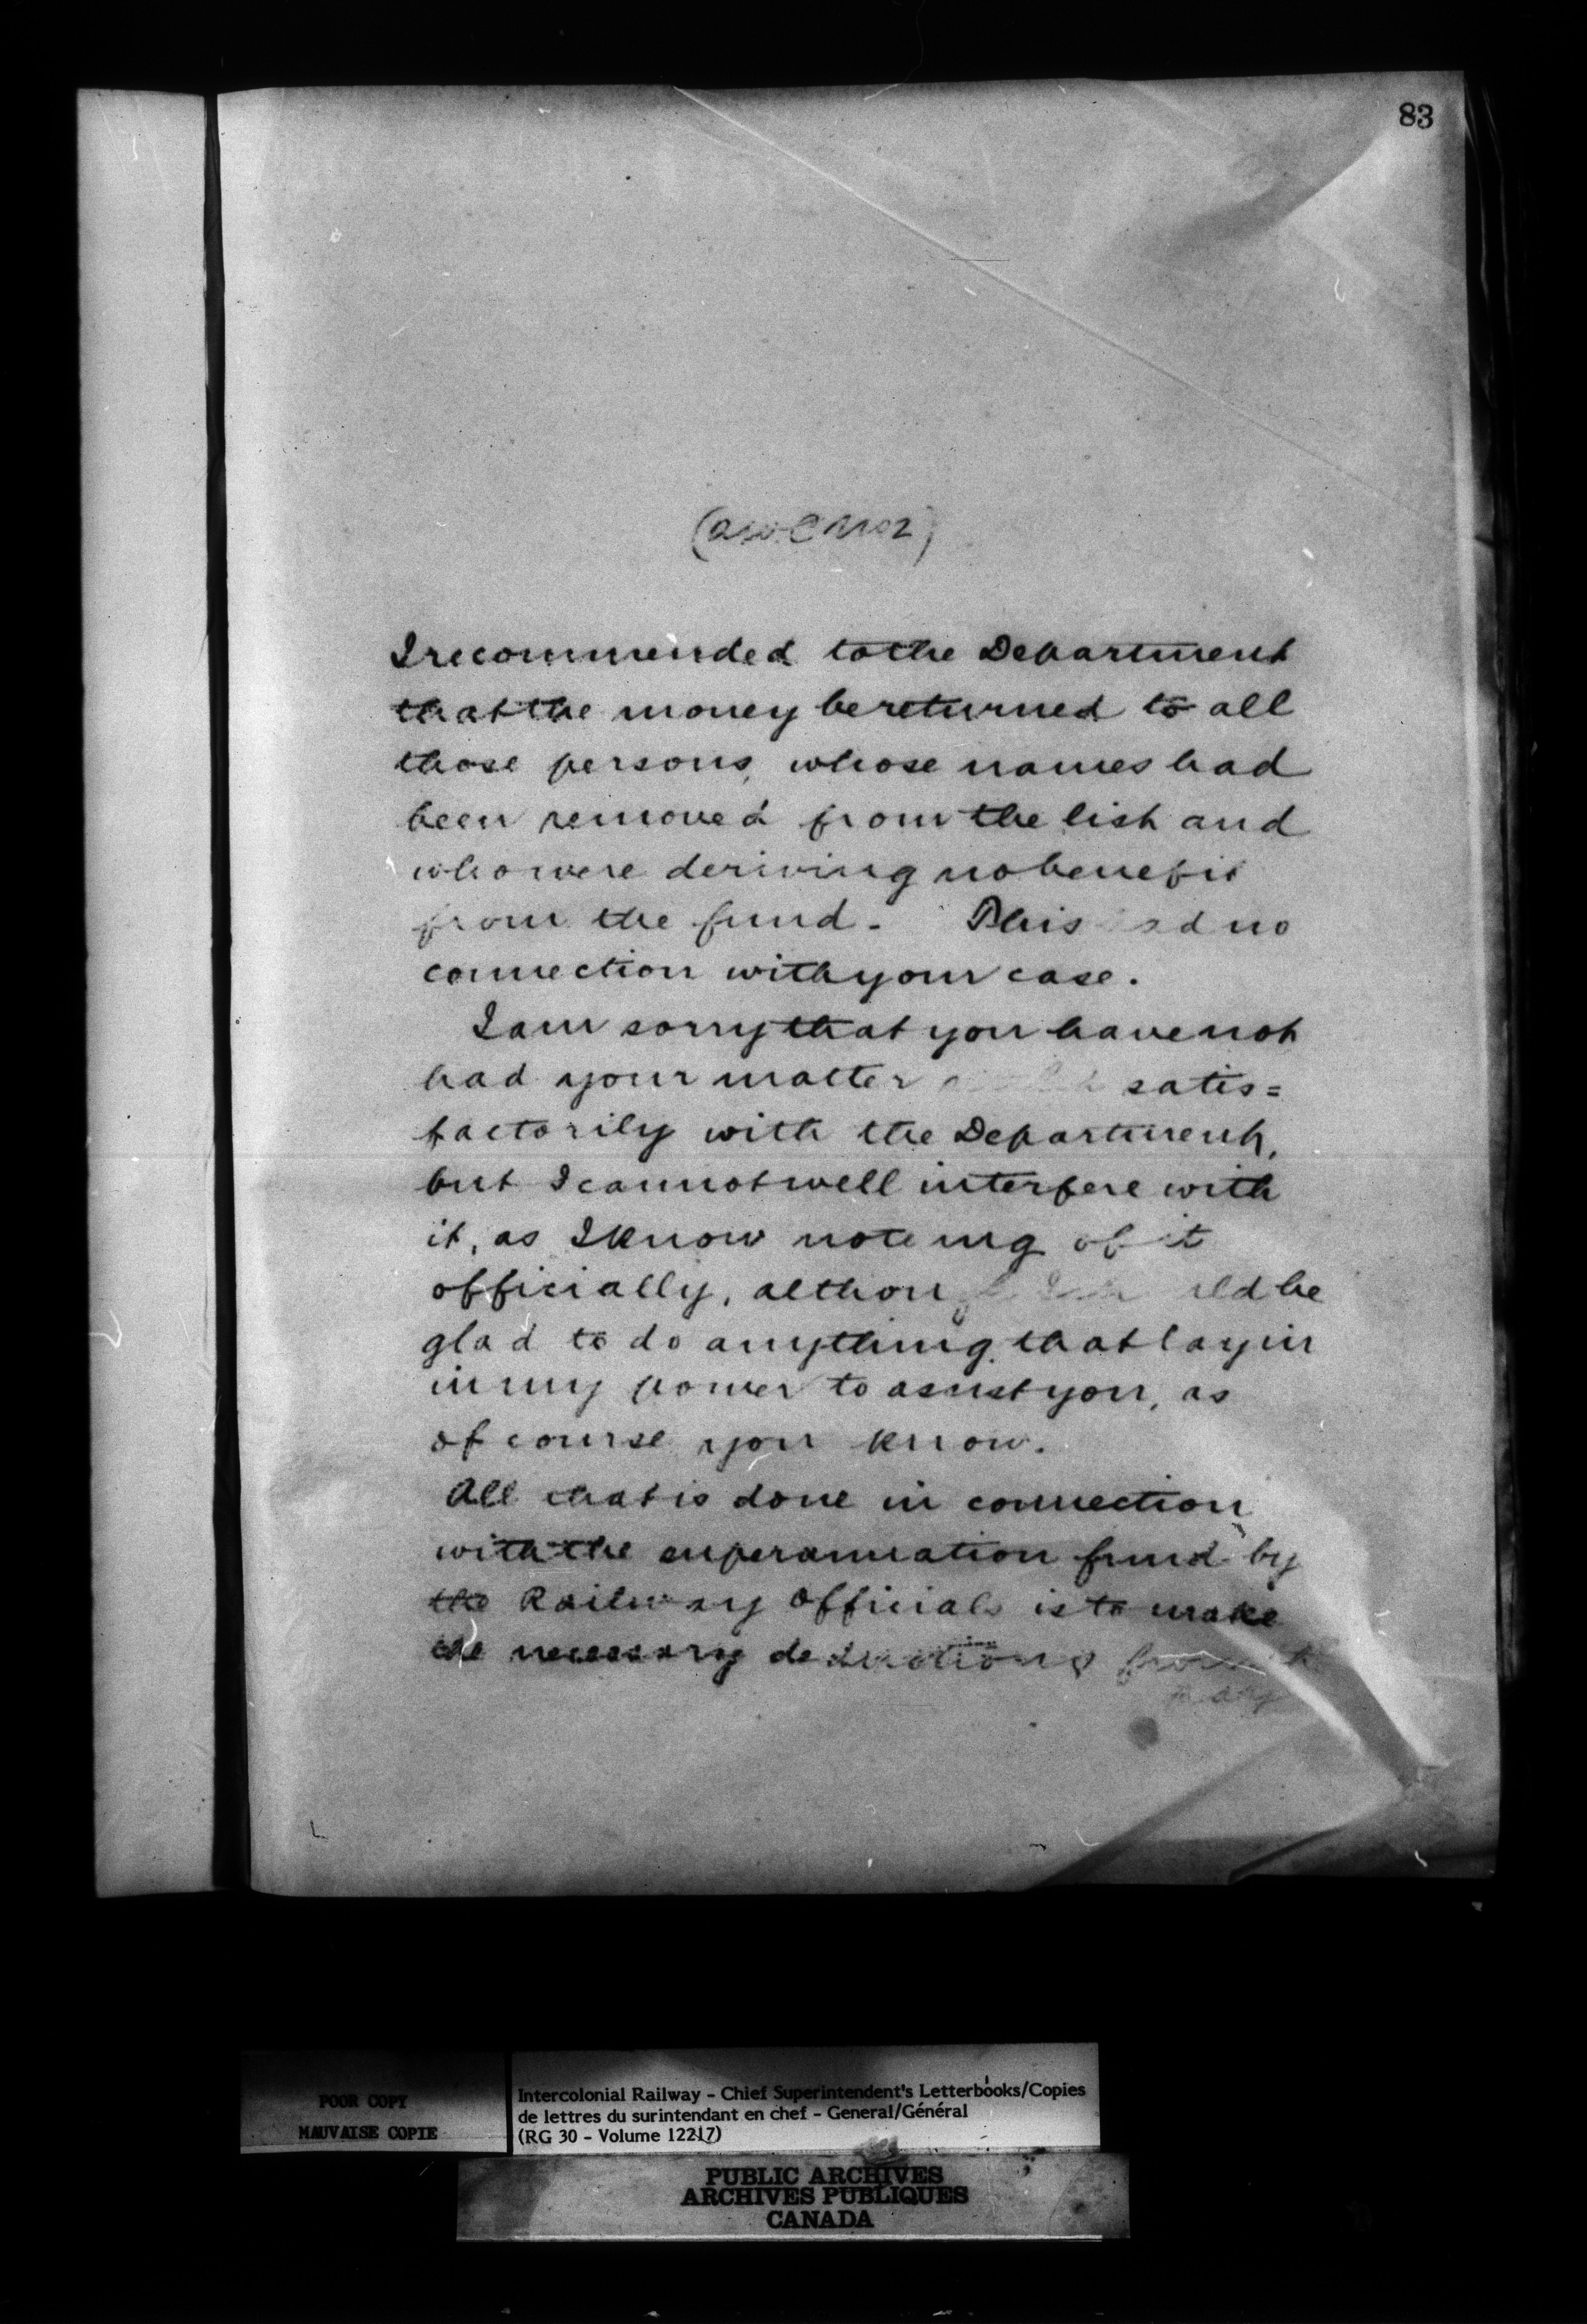 83
I recommended to the Department
that the money be returned to all
those persons, whose names had
been removed from the list and
who were deriving no benefit
from the fund. This had no
connection with your case.
I am sorry that you have not
had your matter satis=
factorily with the Department,
but I cannot well interfere with
it, as I know nothing of it
officially, although I should be
glad to do anything that lay in
in my power to assist you, as
of course you know.
All that is done in connection
with the superannuation fund by
the Railway Officials is to make
the necessary deductions from
POOR COPY
MAUVAISE COPIE
Intercolonial Railway - Chief Superintendent's Letterbooks/Copies
de lettres du surintendant en chef - General/Général
(RG 30 - Volume 12217)
PUBLIC ARCHIVES
ARCHIVES PUBLIQUES
CANADA